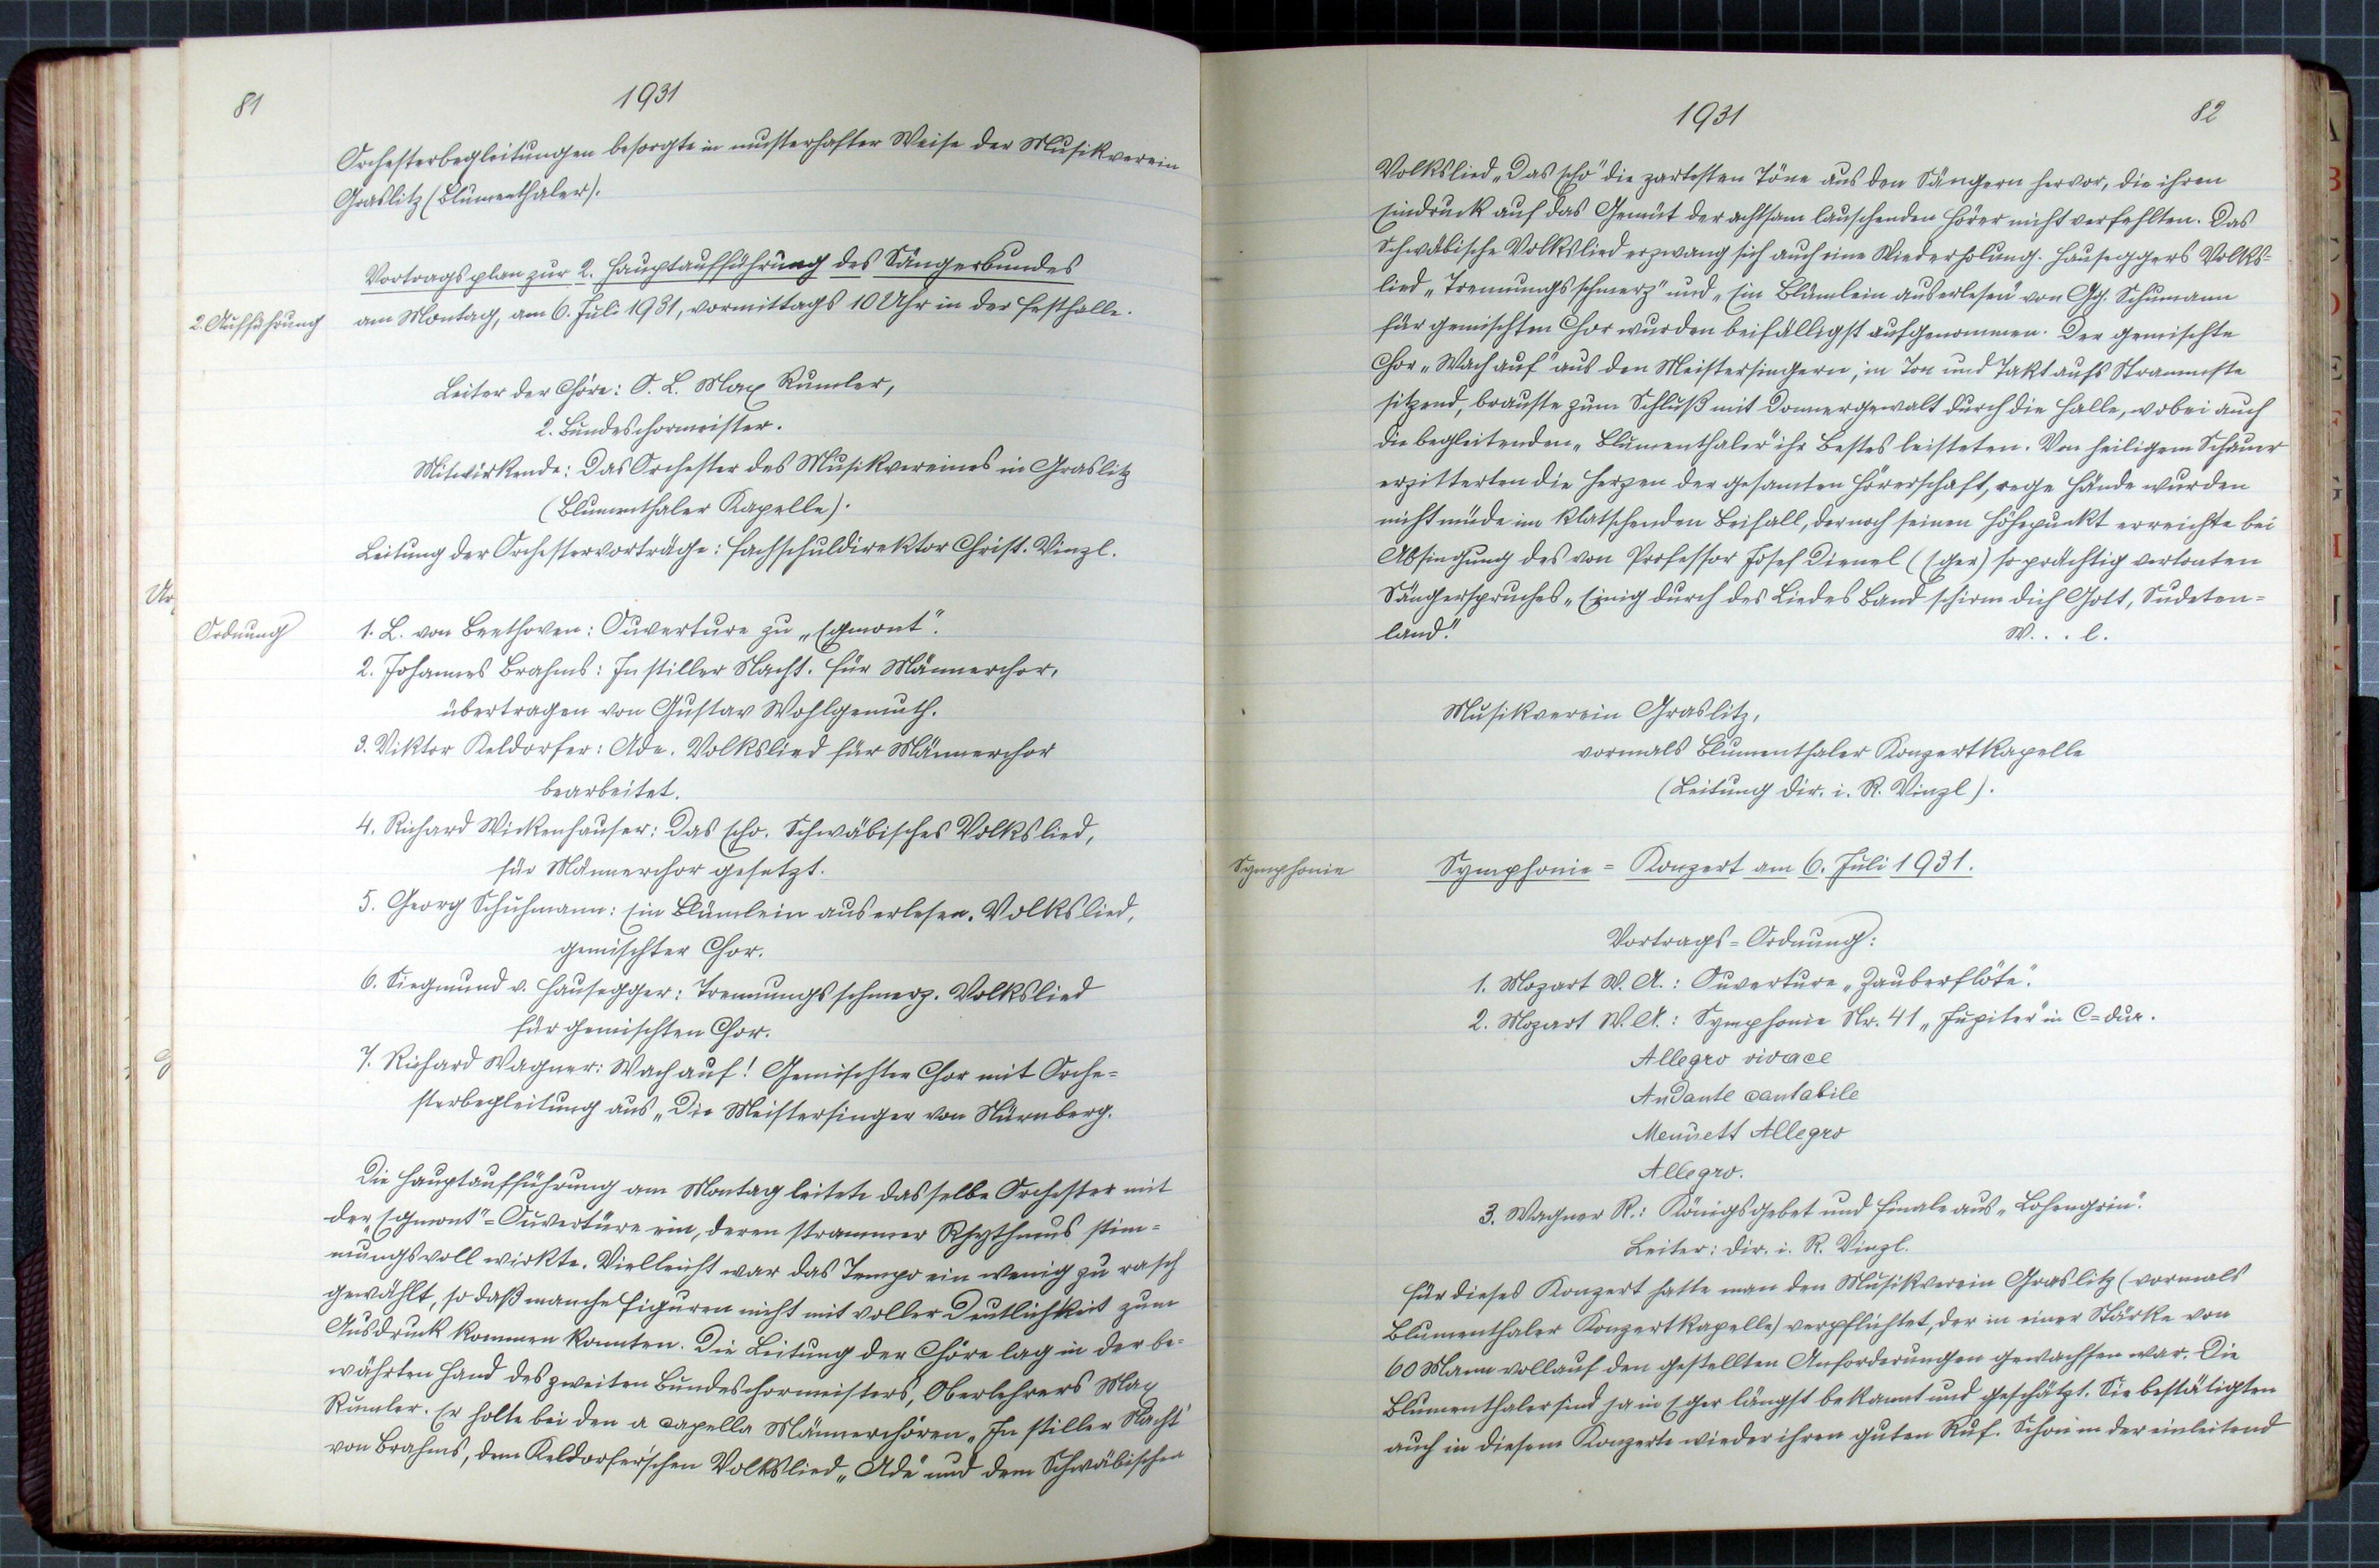 81
1931
Orchesterbegleitungen besorgte in musterhafter Weise der Musikverein
Graslitz (Blumenthaler).
Vortragsplan zur 2. Hauptaufführung des Sängerbundes
2. Aufführung
am Montag, am 6. Juli 1931, vormittags 10 Uhr in der Festhalle.
Leiter der Chöre: O. L. Max Rumler,
2. Bundeschormeister.
Mitwirkende: Das Orchester des Musikvereines in Graslitz
(Blumenthaler Kapelle).
Leitung der Orchestervorträge: Fachschuldirektor Christ. Vinzl.
Ordnung
1. L. von Beethoven: Ouverture zu „Egmont".
2. Johannes Brahms: In stiller Nacht. Für Männerchor,
übertragen von Gustav Wohlgemuth.
3. Viktor Keldorfer: Ade. Volkslied für Männerchor
bearbeitet.
4. Richard Wickenhauser: Das Echo. Schwäbisches Volkslied,
für Männerchor gesetzt.
5. Georg Schuhmann: Ein Blümlein auserlesen. Volkslied,
gemischter Chor.
6. Siegmund v. Hausegger: Trennungsschmerz. Volkslied
für gemischten Chor.
7. Richard Wagner: Wach auf! Gemischter Chor mit Orche=
sterbegleitung aus „Die Meistersinger von Nürnberg.
Die Hauptaufführung am Montag leitete dasselbe Orchester mit
der „Egmont"=Ouvertüre ein, deren strammer Rhythmus stim=
mungsvoll wirkte. Vielleicht war das Tempo ein wenig zu rasch
gewählt, so daß manche Figuren nicht mit voller Deutlichkeit zum
Ausdruck kommen konnten. Die Leitung der Chöre lag in der be=
währten Hand des zweiten Bundeschormeisters, Oberlehrers Max
Rumler. Er holte bei den a capella Männerchören „In stiller Nacht"
von Brahms, dem Keldorfer'schen Volkslied „Ade" und dem Schwäbischen
1931
82
Volkslied „Das Echo" die zartesten Töne aus den Sängern hervor, die ihren
Eindruck auf das Gemüt der achtsam lauschenden Hörer nicht verfehlten. Das
Schwäbische Volkslied erzwang sich auch eine Wiederholung. Hauseggers Volks=
lied „Trennungsschmerz" und „Ein Blümlein auserlesen" von Gg. Schumann
für gemischten Chor wurden beifälligst aufgenommen. Der gemischte
Chor „Wach auf" aus den Meistersingern, in Ton und Takt aufs Strammste
sitzend, brauste zum Schluß mit Donnergewalt durch die Halle, wobei auch
die begleitenden „Blumenthaler" ihr Bestes leisteten. Von heiligem Schauer
erzitterten die Herzen der gesamten Hörerschaft, rege Hände wurden
nicht müde im klatschenden Beifall, der noch seinen Höhepunkt erreichte bei
Absingung des von Professor Josef Dienel (Eger) so prächtig vertonten
Sängerspruches „Einig durch des Liedes Band schirm dich Gott, Sudeten=
land."
W. . . l.
Musikverein Graslitz,
vormals Blumenthaler Konzertkapelle
(Leitung Dir. i. R. Vinzl).
Symphonie
Symphonie = Konzert am 6. Juli 1931.
Vortrags=Ordnung:
1. Mozart W. A.: Ouverture „Zauberflöte".
2. Mozart W. A.: Symphonie Nr. 41 „Jupiter" in C=dur.
Allegro vivace
Andante cantabile
Menuett Allegro
Allegro.
3. Wagner R.: Königsgebet und Finale aus „Lohengrin".
Leiter: Dir. i. R. Vinzl.
Für dieses Konzert hatte man den Musikverein Graslitz (vormals
Blumenthaler Konzertkapelle) verpflichtet, der in einer Stärke von
60 Mann vollauf den gestellten Anforderungen gewachsen war. Die
Blumenthaler sind ja in Eger längst bekannt und geschätzt. Sie bestätigten
auch in diesem Konzerte wieder ihren guten Ruf. Schon in der einleitend